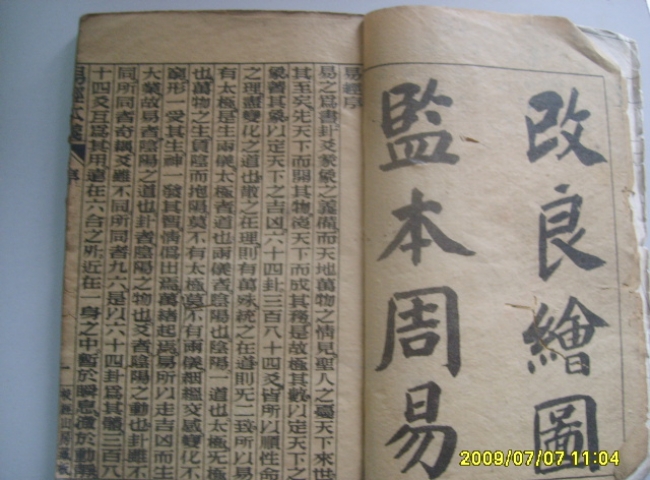 改良繪圖
監本周易
易經序
易之爲書卦爻彖象之義備而天地萬物之情見聖人之憂天下來世
其至矣先天下而開其物後天下而成其務是故極其數以定天下之
象著其象以定天下之吉凶六十四卦三百八十四爻皆所以順性命
之理盡變化之道也散之在理則有萬殊統之在道則无二致所以易
有太極是生兩儀太極者道也兩儀者陰陽也陰陽一道也太極无極
也萬物之生負陰而抱陽莫不有太極莫不有兩儀絪縕交感變化不
窮形一受其生神一發其智情僞出焉萬緒起焉易所以定吉凶而生
大業故易者陰陽之道也卦者陰陽之物也爻者陰陽之動也卦雖不
同所同者奇耦爻雖不同所同者九六是以六十四卦爲其體三百八
十四爻互爲其用遠在六合之外近在一身之中暫於瞬息微於動靜
2009/07/07 11:04